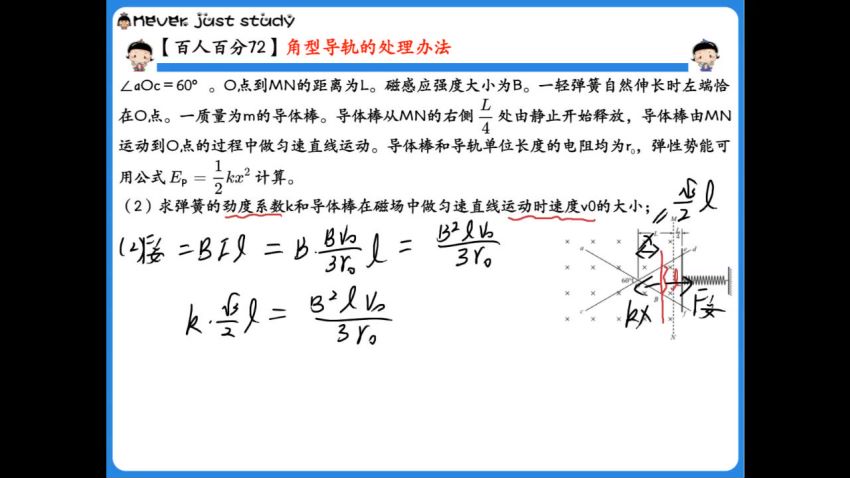 never just study
【百人百分72】角型导轨的处理办法
∠aOc=60° 。O点到MN的距离为L。磁感应强度大小为B。一轻弹簧自然伸长时左端恰
在O点。一质量为m的导体棒。导体棒从MN的右侧 L/4 处由静止开始释放，导体棒由MN
运动到O点的过程中做匀速直线运动。导体棒和导轨单位长度的电阻均为r₀，弹性势能可
用公式 Eₚ = 1/2 kx² 计算。
（2）求弹簧的劲度系数k和导体棒在磁场中做匀速直线运动时速度v0的大小；
(2) F安 = BIl = B·Bv₀/3r₀ l = B²lv₀/3r₀
k·√3/2 l = B²lv₀/3r₀
√3/2 l
M
L
x
a
d
60°
l
c
B
kx
F安
f
N